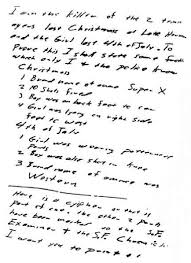 I am the killer of the 2 teen
agers last Christmass at Lake Herman
and the Girl last 4th of July. To
Prove this I shall state some facts
which only I + the police know
Christmass
1 Brand name of ammo Super X
2 10 Shots fired
3 Boy was on back feet to car
4 Girl was lyeing on right side
feet to west
4th of July
1 Girl was wearing patterned
pants
2 Boy was also shot in knee
3 Brand name of ammo was
Western
Here is a cyipher or that is
part of one. the other 2 parts
have been mailed to the
Examiner + the S.F. Chronicle
I want you to print